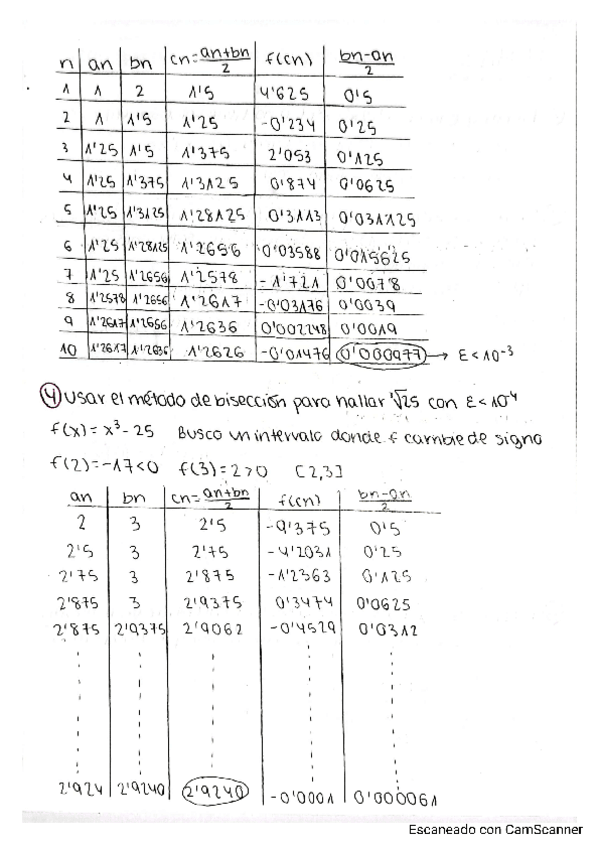 n an bn cn=an+bn/2 f(cn) bn-an/2
1 1 2 1'5 4'625 0'5
2 1 1'5 1'25 -0'234 0'25
3 1'25 1'5 1'375 2'053 0'125
4 1'25 1'375 1'3125 0'874 0'0625
5 1'25 1'3125 1'28125 0'3113 0'031125
6 1'25 1'28125 1'2656 0'03588 0'015625
7 1'25 1'2656 1'2578 -1'721 0'0078
8 1'2578 1'2656 1'2617 -0'03176 0'0039
9 1'2617 1'2656 1'2636 0'002248 0'0019
10 1'2617 1'2636 1'2626 -0'01476 0'000977 → E<10⁻³
④ Usar el método de bisección para hallar ³√25 con E<10⁻⁴
f(x)=x³-25 Busco un intervalo donde f cambie de signo
f(2)=-17<0 f(3)=2>0 [2,3]
an bn cn=an+bn/2 f(cn) bn-an/2
2 3 2'5 -9'375 0'5
2'5 3 2'75 -4'2031 0'25
2'75 3 2'875 -1'2363 0'125
2'875 3 2'9375 0'3474 0'0625
2'875 2'9375 2'9062 -0'4529 0'0312
2'924 2'9240 2'9240 -0'0001 0'000061
Escaneado con CamScanner